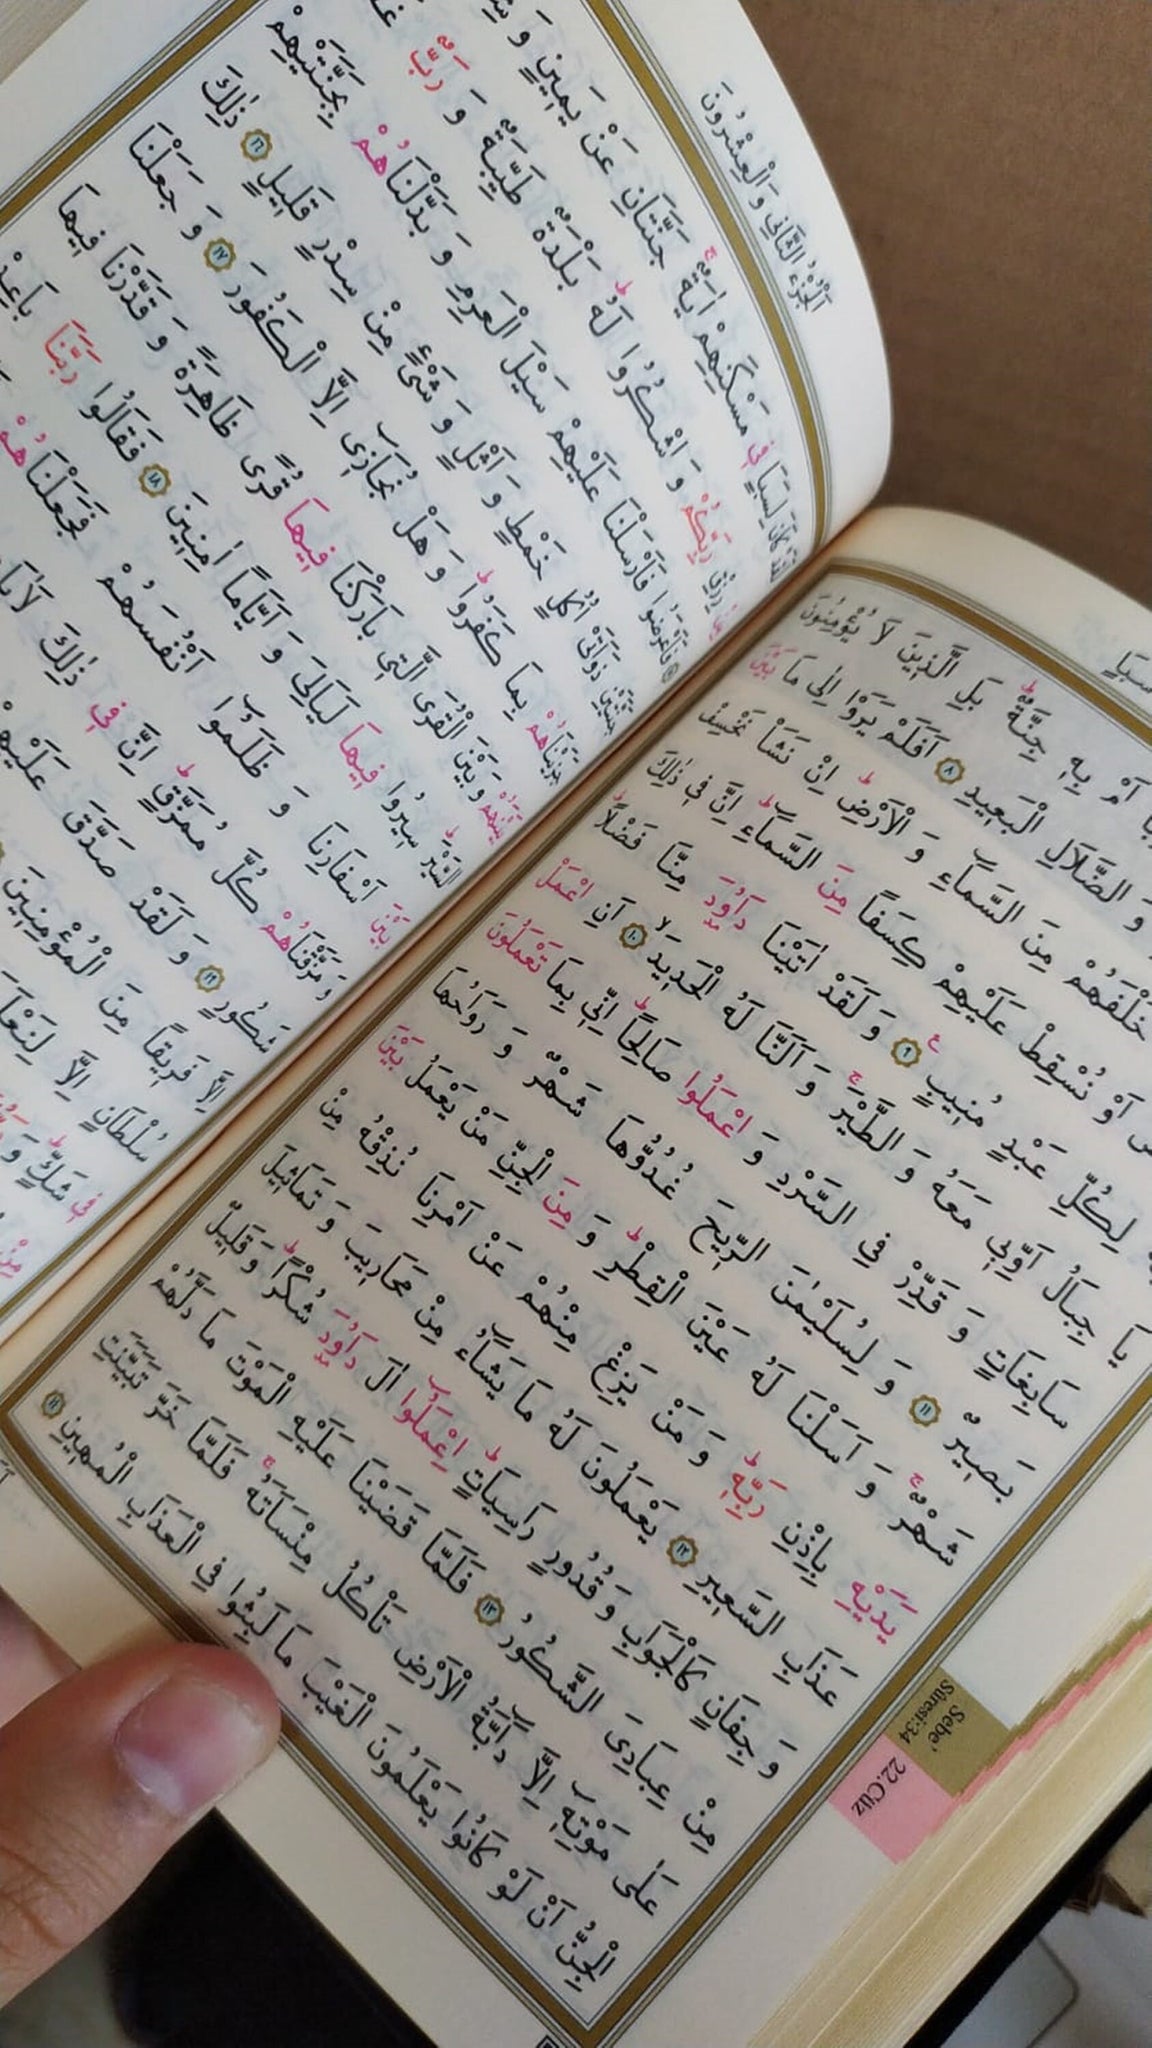 اَمْ بِهِ جِنَّةٌ بَلِ الَّذِينَ لَا يُؤْمِنُونَ
وَ الضَّلَالِ الْبَعِيدِ ٨ اَفَلَمْ يَرَوْا اِلٰى مَا بَيْنَ
خَلْفَهُمْ مِنَ السَّمَاءِ وَ الْاَرْضِ اِنْ نَشَأْ نَخْسِفْ
اَوْ نُسْقِطْ عَلَيْهِمْ كِسَفًا مِنَ السَّمَاءِ اِنَّ فِي ذٰلِكَ
لِكُلِّ عَبْدٍ مُنِيبٍ ٩ وَ لَقَدْ اٰتَيْنَا دَاوُدَ مِنَّا فَضْلًا
يَا جِبَالُ اَوِّبِي مَعَهُ وَ الطَّيْرَ وَ اَلَنَّا لَهُ الْحَدِيدَ ١٠ اَنِ اعْمَلْ
سَابِغَاتٍ وَ قَدِّرْ فِي السَّرْدِ وَ اعْمَلُوا صَالِحًا اِنِّي بِمَا تَعْمَلُونَ
بَصِيرٌ ١١ وَ لِسُلَيْمٰنَ الرِّيحَ غُدُوُّهَا شَهْرٌ وَ رَوَاحُهَا
شَهْرٌ وَ اَسَلْنَا لَهُ عَيْنَ الْقِطْرِ وَ مِنَ الْجِنِّ مَنْ يَعْمَلُ بَيْنَ
يَدَيْهِ بِاِذْنِ رَبِّهِ وَ مَنْ يَزِغْ مِنْهُمْ عَنْ اَمْرِنَا نُذِقْهُ مِنْ
عَذَابِ السَّعِيرِ ١٢ يَعْمَلُونَ لَهُ مَا يَشَاءُ مِنْ مَحَارِيبَ وَ تَمَاثِيلَ
وَ جِفَانٍ كَالْجَوَابِ وَ قُدُورٍ رَاسِيَاتٍ اِعْمَلُوا اٰلَ دَاوُدَ شُكْرًا وَ قَلِيلٌ
مِنْ عِبَادِيَ الشَّكُورُ ١٣ فَلَمَّا قَضَيْنَا عَلَيْهِ الْمَوْتَ مَا دَلَّهُمْ
عَلٰى مَوْتِهِ اِلَّا دَابَّةُ الْاَرْضِ تَأْكُلُ مِنْسَاَتَهُ فَلَمَّا خَرَّ تَبَيَّنَتِ
الْجِنُّ اَنْ لَوْ كَانُوا يَعْلَمُونَ الْغَيْبَ مَا لَبِثُوا فِي الْعَذَابِ الْمُهِينِ ١٤
Sebe'
Sûresi:34
22.Cüz
اَلْجُزْءُ الثَّانِي وَ الْعِشْرُونَ
كَانَ لِسَبَاٍ فِي مَسْكَنِهِمْ اٰيَةٌ جَنَّتَانِ عَنْ يَمِينٍ وَ
رَبِّكُمْ وَ اشْكُرُوا لَهُ بَلْدَةٌ طَيِّبَةٌ وَ رَبٌّ
فَاَعْرَضُوا فَاَرْسَلْنَا عَلَيْهِمْ سَيْلَ الْعَرِمِ وَ بَدَّلْنَاهُمْ بِجَنَّتَيْهِمْ
جَنَّتَيْنِ ذَوَاتَيْ اُكُلٍ خَمْطٍ وَ اَثْلٍ وَ شَيْءٍ مِنْ سِدْرٍ قَلِيلٍ ١٦ ذٰلِكَ
جَزَيْنَاهُمْ بِمَا كَفَرُوا وَ هَلْ نُجَازِي اِلَّا الْكَفُورَ ١٧ وَ جَعَلْنَا
بَيْنَهُمْ وَ بَيْنَ الْقُرَى الَّتِي بَارَكْنَا فِيهَا قُرًى ظَاهِرَةً وَ قَدَّرْنَا فِيهَا
السَّيْرَ سِيرُوا فِيهَا لَيَالِيَ وَ اَيَّامًا اٰمِنِينَ ١٨ فَقَالُوا رَبَّنَا بَاعِدْ
بَيْنَ اَسْفَارِنَا وَ ظَلَمُوا اَنْفُسَهُمْ فَجَعَلْنَاهُمْ
وَ مَزَّقْنَاهُمْ كُلَّ مُمَزَّقٍ اِنَّ فِي ذٰلِكَ
شَكُورٍ ١٩ وَ لَقَدْ صَدَّقَ عَلَيْهِمْ
اِلَّا فَرِيقًا مِنَ الْمُؤْمِنِينَ
سُلْطَانٍ اِلَّا لِنَعْلَمَ
فِي شَكٍّ وَ
مِنْ